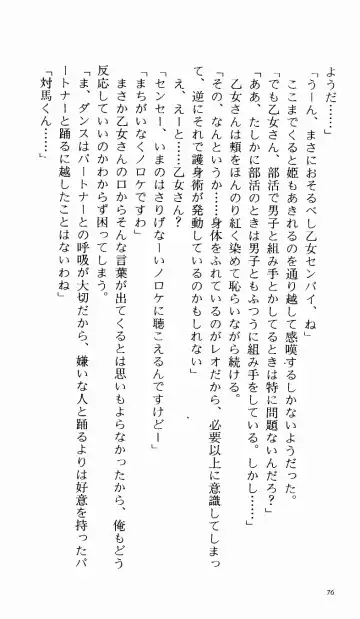 ようだ……」
「うーん、まさにおそるべし乙女センパイ、ね」
ここまでくると姫もあきれるのを通り越して感嘆するしかないようだった。
「でも乙女さん、部活で男子と組み手とかしてるときは特に問題ないんだろ？」
「ああ、たしかに部活のときは男子ともふつうに組み手をしている。しかし……」
乙女さんは頬をほんのり紅く染めて恥らいながら続ける。
「その、なんというか……身体をふれているのがレオだから、必要以上に意識してしまっ
て、逆にそれで護身術が発動しているのかもしれない」
え、えーと……乙女さん？
「センセー、いまのはさりげなーいノロケに聴こえるんですけどー」
「まちがいなくノロケですわ」
まさか乙女さんの口からそんな言葉が出てくるとは思いもよらなかったから、俺もどう
反応していいのかわからず困ってしまう。
「ま、ダンスはパートナーとの呼吸が大切だから、嫌いな人と踊るよりは好意を持ったパ
ートナーと踊るに越したことはないわね」
「対馬くん……」
76